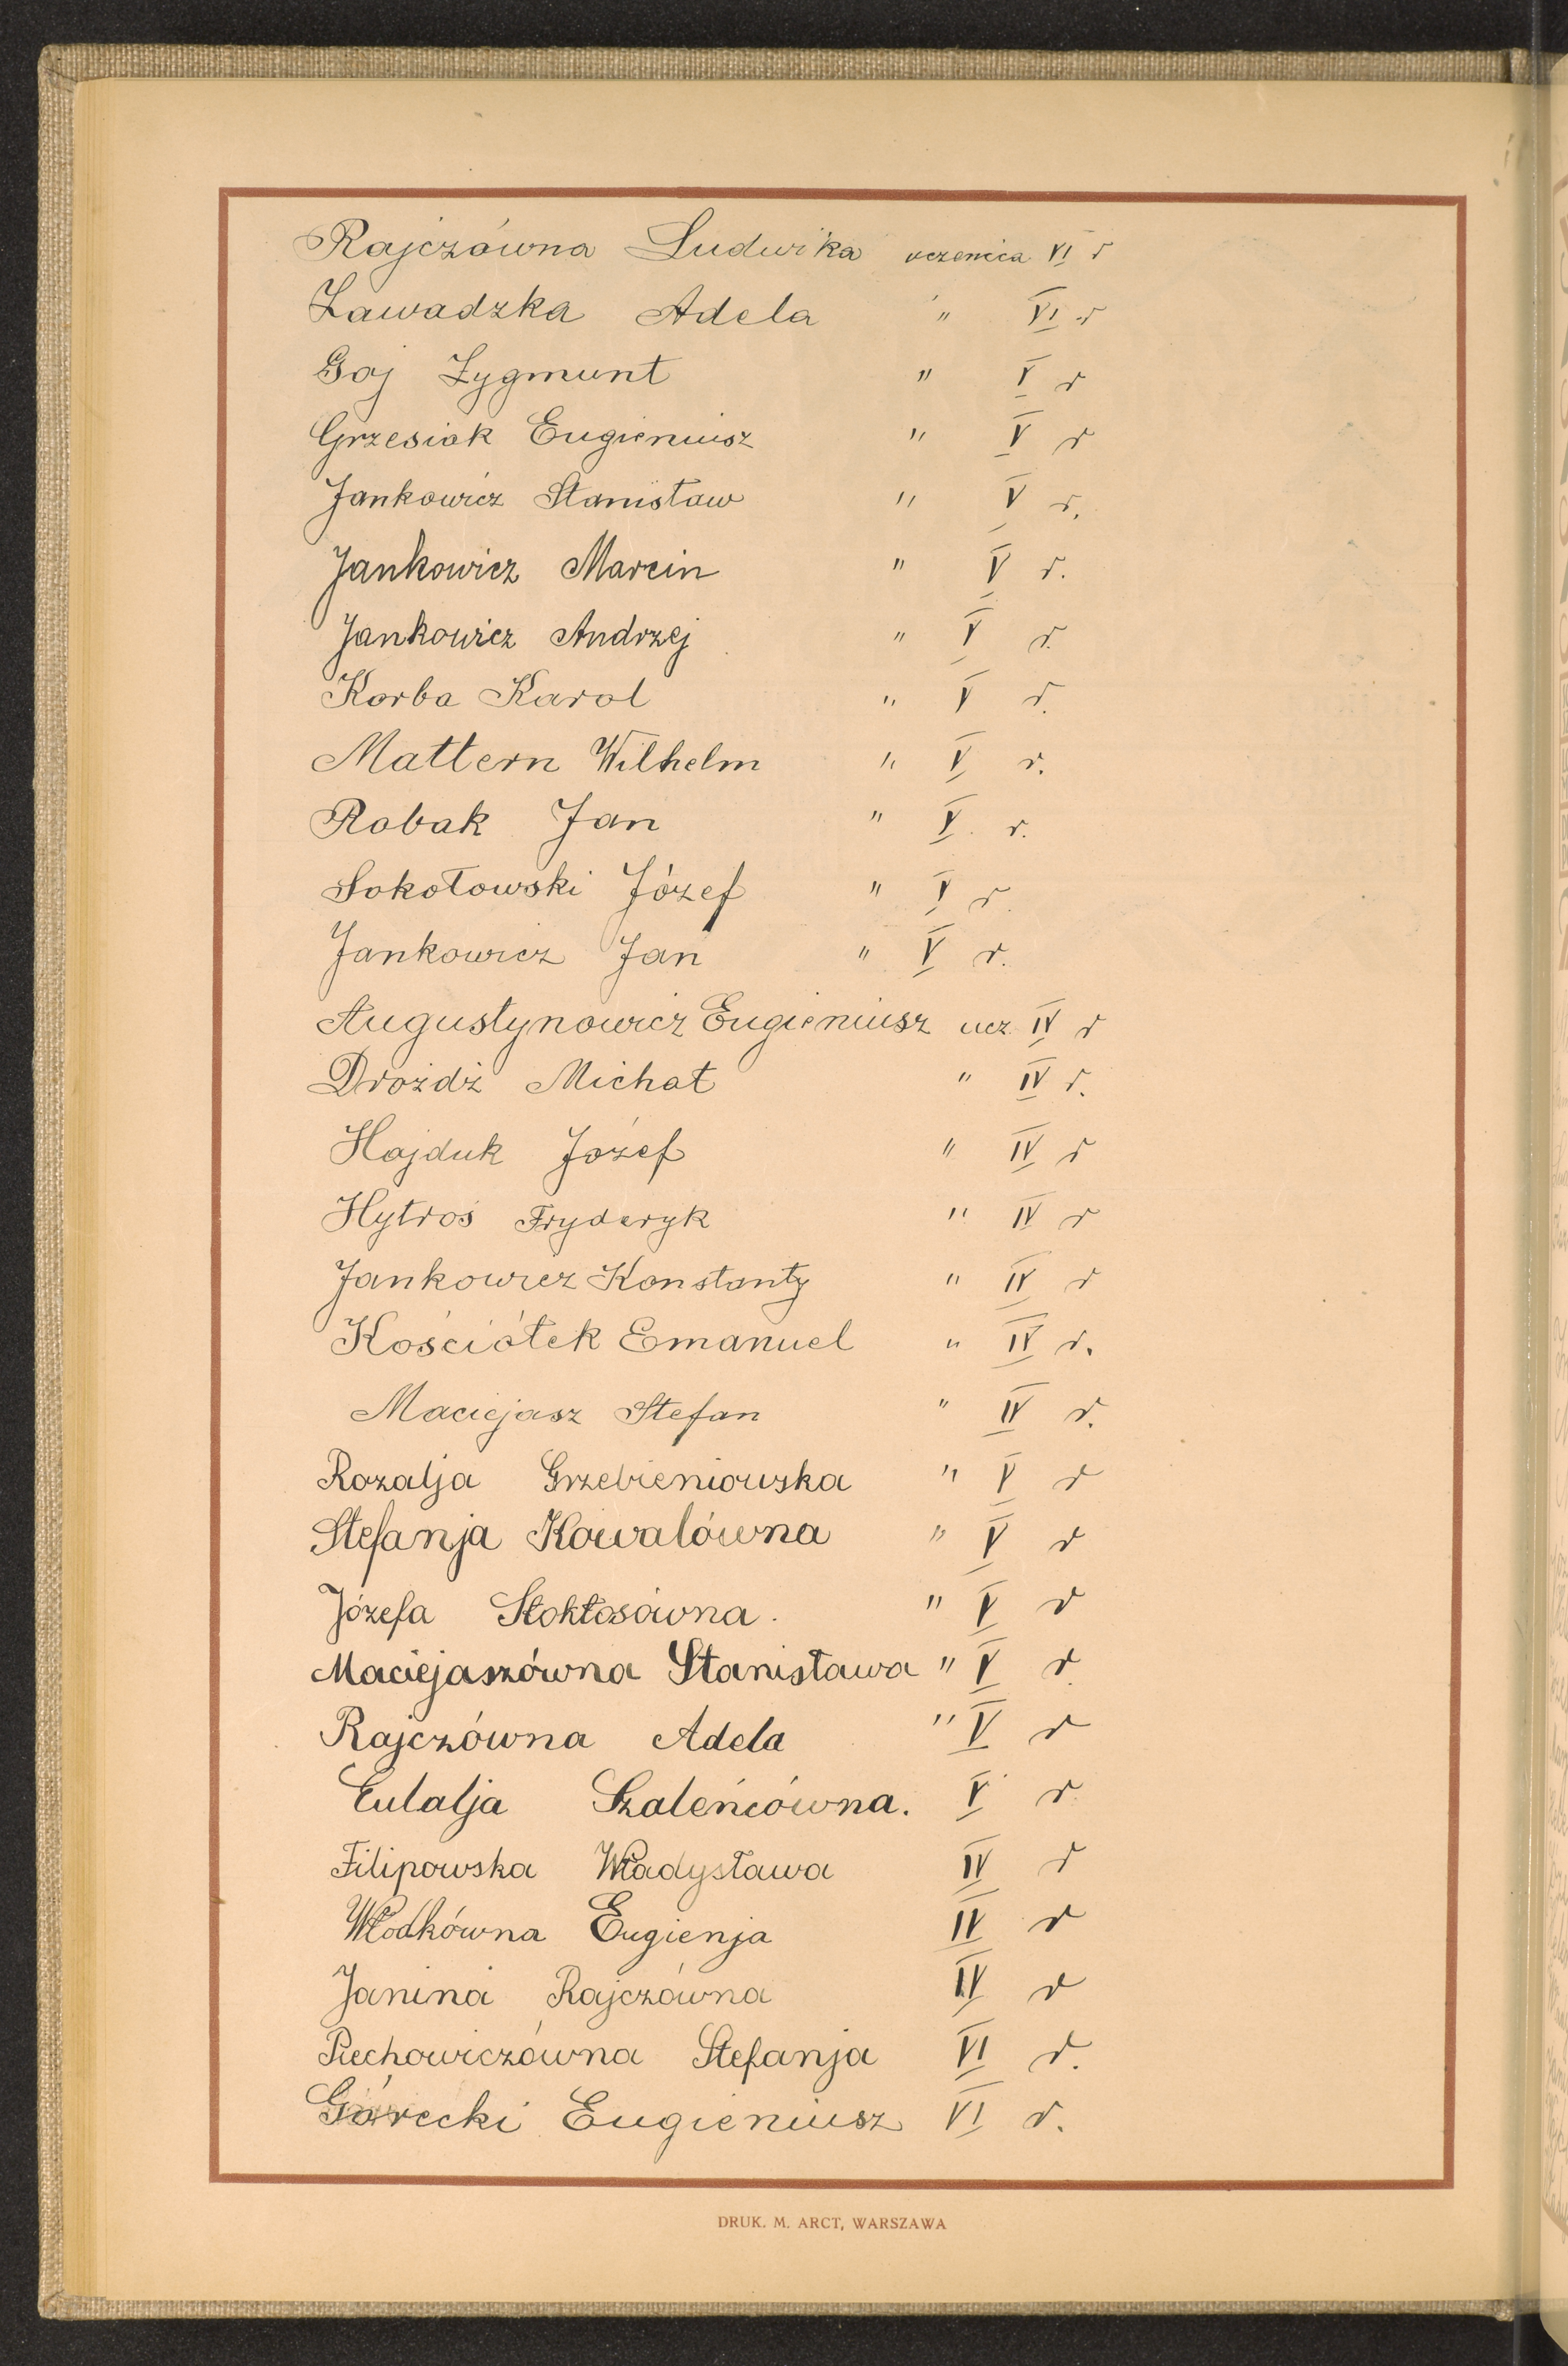 Rajczówna Ludwika uczenica VI r
Zawadzka Adela " VI r
Goj Zygmunt " V r
Grzesiak Eugieniusz " V r
Jankowicz Stanisław " V r.
Jankowicz Marcin " V r.
Jankowicz Andrzej " V r.
Korba Karol " V r.
Mattern Wilhelm " V r.
Robak Jan " V r.
Sokołowski Józef " V r.
Jankowicz Jan " V r.
Augustynowicz Eugieniusz ucz IV r
Drożdż Michał " IV r.
Hajduk Józef " IV r
Hytroś Fryderyk " IV r
Jankowicz Konstanty " IV r
Kościółek Emanuel " IV r.
Maciejasz Stefan " IV r.
Rozalja Grzebieniowska " V r
Stefanja Kowalówna " V r
Józefa Stokłosówna. " V r
Maciejaszówna Stanisława " V r.
Rajczówna Adela " V r
Eulalja Szaleńcówna. V r
Filipowska Władysława IV r
Włodkówna Eugienja IV r
Janina Rajczówna IV r
Piechowiczówna Stefanja VI r.
Górecki Eugieniusz VI r.
DRUK. M. ARCT, WARSZAWA